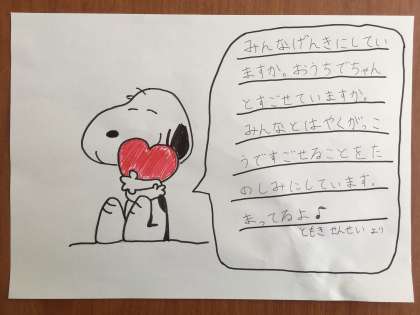 みんなげんきにしてい
ますか。おうちでちゃん
とすごせていますか。
みんなとはやくがっこ
うですごせることをた
のしみにしています。
まってるよ♪
ともき せんせい より